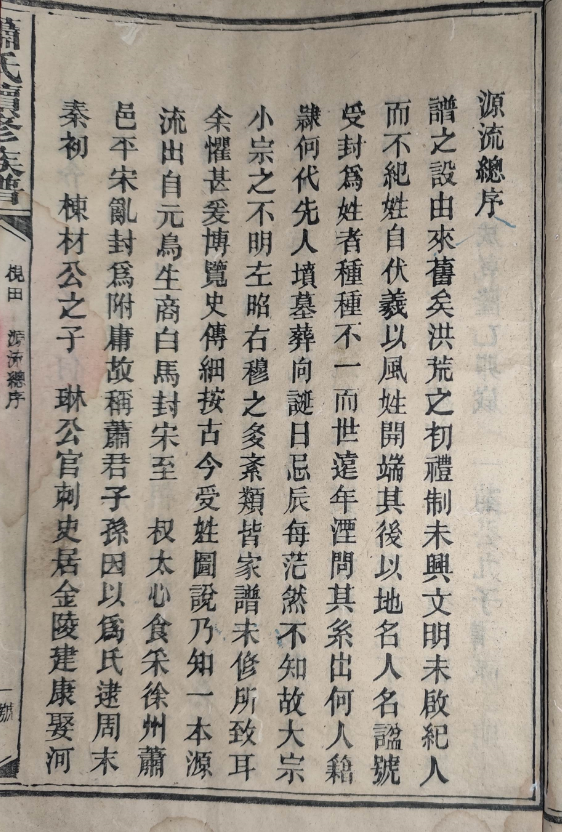 源流總序
譜之設由來舊矣洪荒之初禮制未興文明未啟紀人
而不紀姓自伏羲以風姓開端其後以地名人名謚號
受封爲姓者種種不一而世遠年湮問其系出何人籍
隸何代先人墳墓葬向誕日忌辰每茫然不知故大宗
小宗之不明左昭右穆之多紊類皆家譜未修所致耳
余懼甚爰博覽史傳細按古今受姓圖說乃知一本源
流出自元鳥生商白馬封宋至 叔太心食采徐州蕭
邑平宋亂封爲附庸故稱蕭君子孫因以爲氏逮周末
秦初 棟材公之子 琳公官刺史居金陵建康娶河
蕭氏續修族譜
梘田 源流總序
一